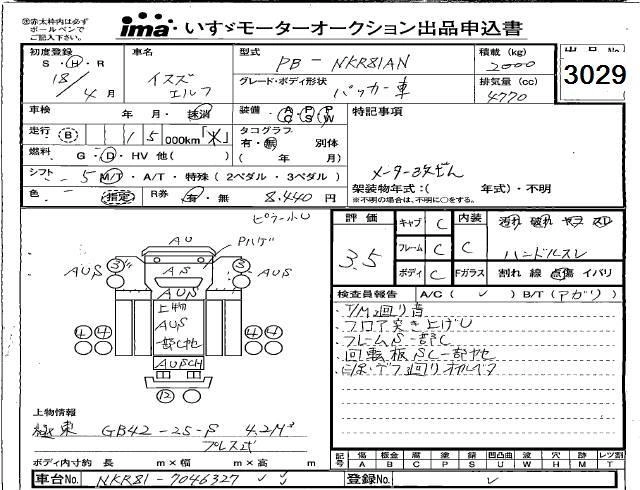 ※赤太枠内は必ず
ボールペンで
ご記入下さい。
ima いすゞモーターオークション出品申込書
初度登録 車名 型式 積載 (kg) 出品No.
S・H・R イスズ PB-NKR81AN 2000 3029
18/4月 エルフ グレード・ボディ形状 パッカー車 排気量 (cc) 4770
車検 年 月・抹消 装備 A/C P/S P/W 特記事項
走行 B 15 000km タコグラフ
有・無 別体
燃料 G・D・HV 他( ) ( 年 月)
メーター改ざん
シフト 5 M/T・A/T・特殊(2ペダル・3ペダル)
架装物年式:( 年式)・不明
※不明の場合は、不明に○をする。
色 指定 R券 有・無 8.440円
評価 キャブ C 内装 汚れ 破れ ヤケ スレ
3.5 フレーム C C ハンドルスレ
ボディ C Fガラス 割れ 線 点傷 イバリ
検査員報告 A/C( ✓ ) B/T(アガリ)
・T/M廻り音
・フロア突き上げU
・フレームS一部C
・回転板SC一部他
AU
AUS 3 AS 3 AUS
AUS
上物
AUS
一部他
4 4 4 4
AUSCH
12
上物情報
極東 GB42-25-P 4.2M³
プレス式
ボディ内寸約 長 m×幅 m×高 m
記号 傷 A 板金 B 腐 C 塗 P 錆 S 凹凸曲 U 波 W 穴 H 跡 M レツ割 T
車台No. NKR81-7046327 ✓ ✓ 登録No. ✓